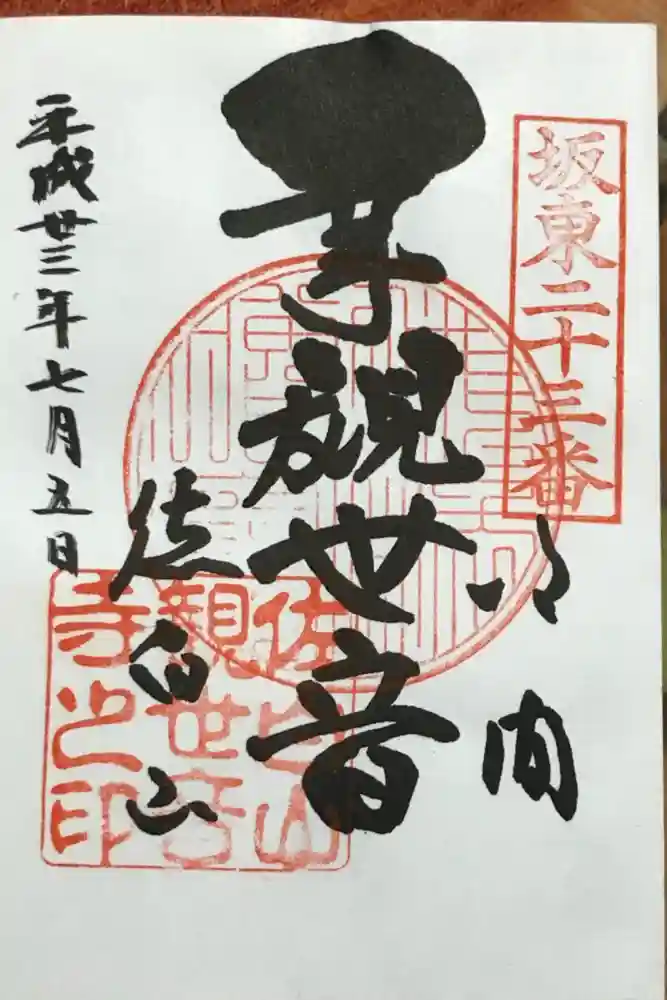 坂東二十三番
間
千手観世音
佐白山
平成廿三年七月五日
佐白山
観世音
寺之印